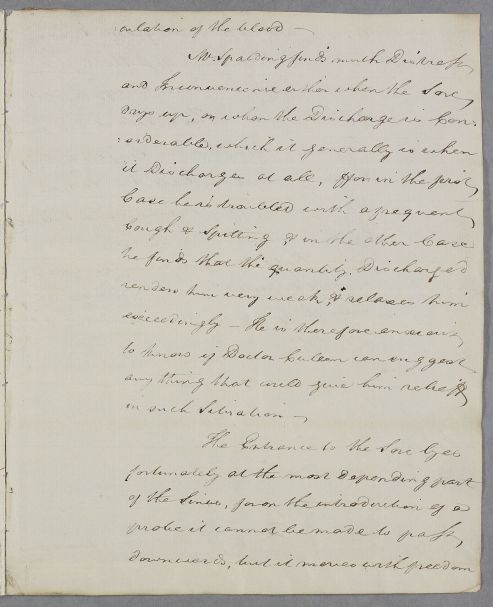 :culation of the blood —
Mr. Spalding finds much Distress
and Inconvenience either when the Sore
drys up, or when the Discharge is Con:
:siderable, which it generally is when
it Discharges at all, ffor in the first
Case he is troubled with a frequent
Cough & Spitting & in the other Case
he finds that the quantity Discharged
renders him very weak, & relaxes him
exceedingly — He is therefore anxious
to know if Doctor Cullen can suggest
any thing that could give him relief
in such Situation —
The Entrance to the Sore lyes
fortunately at the most depending part
of the Sinus, for on the introduction of a
probe it cannot be made to pass
downwards, but it moves with freedom